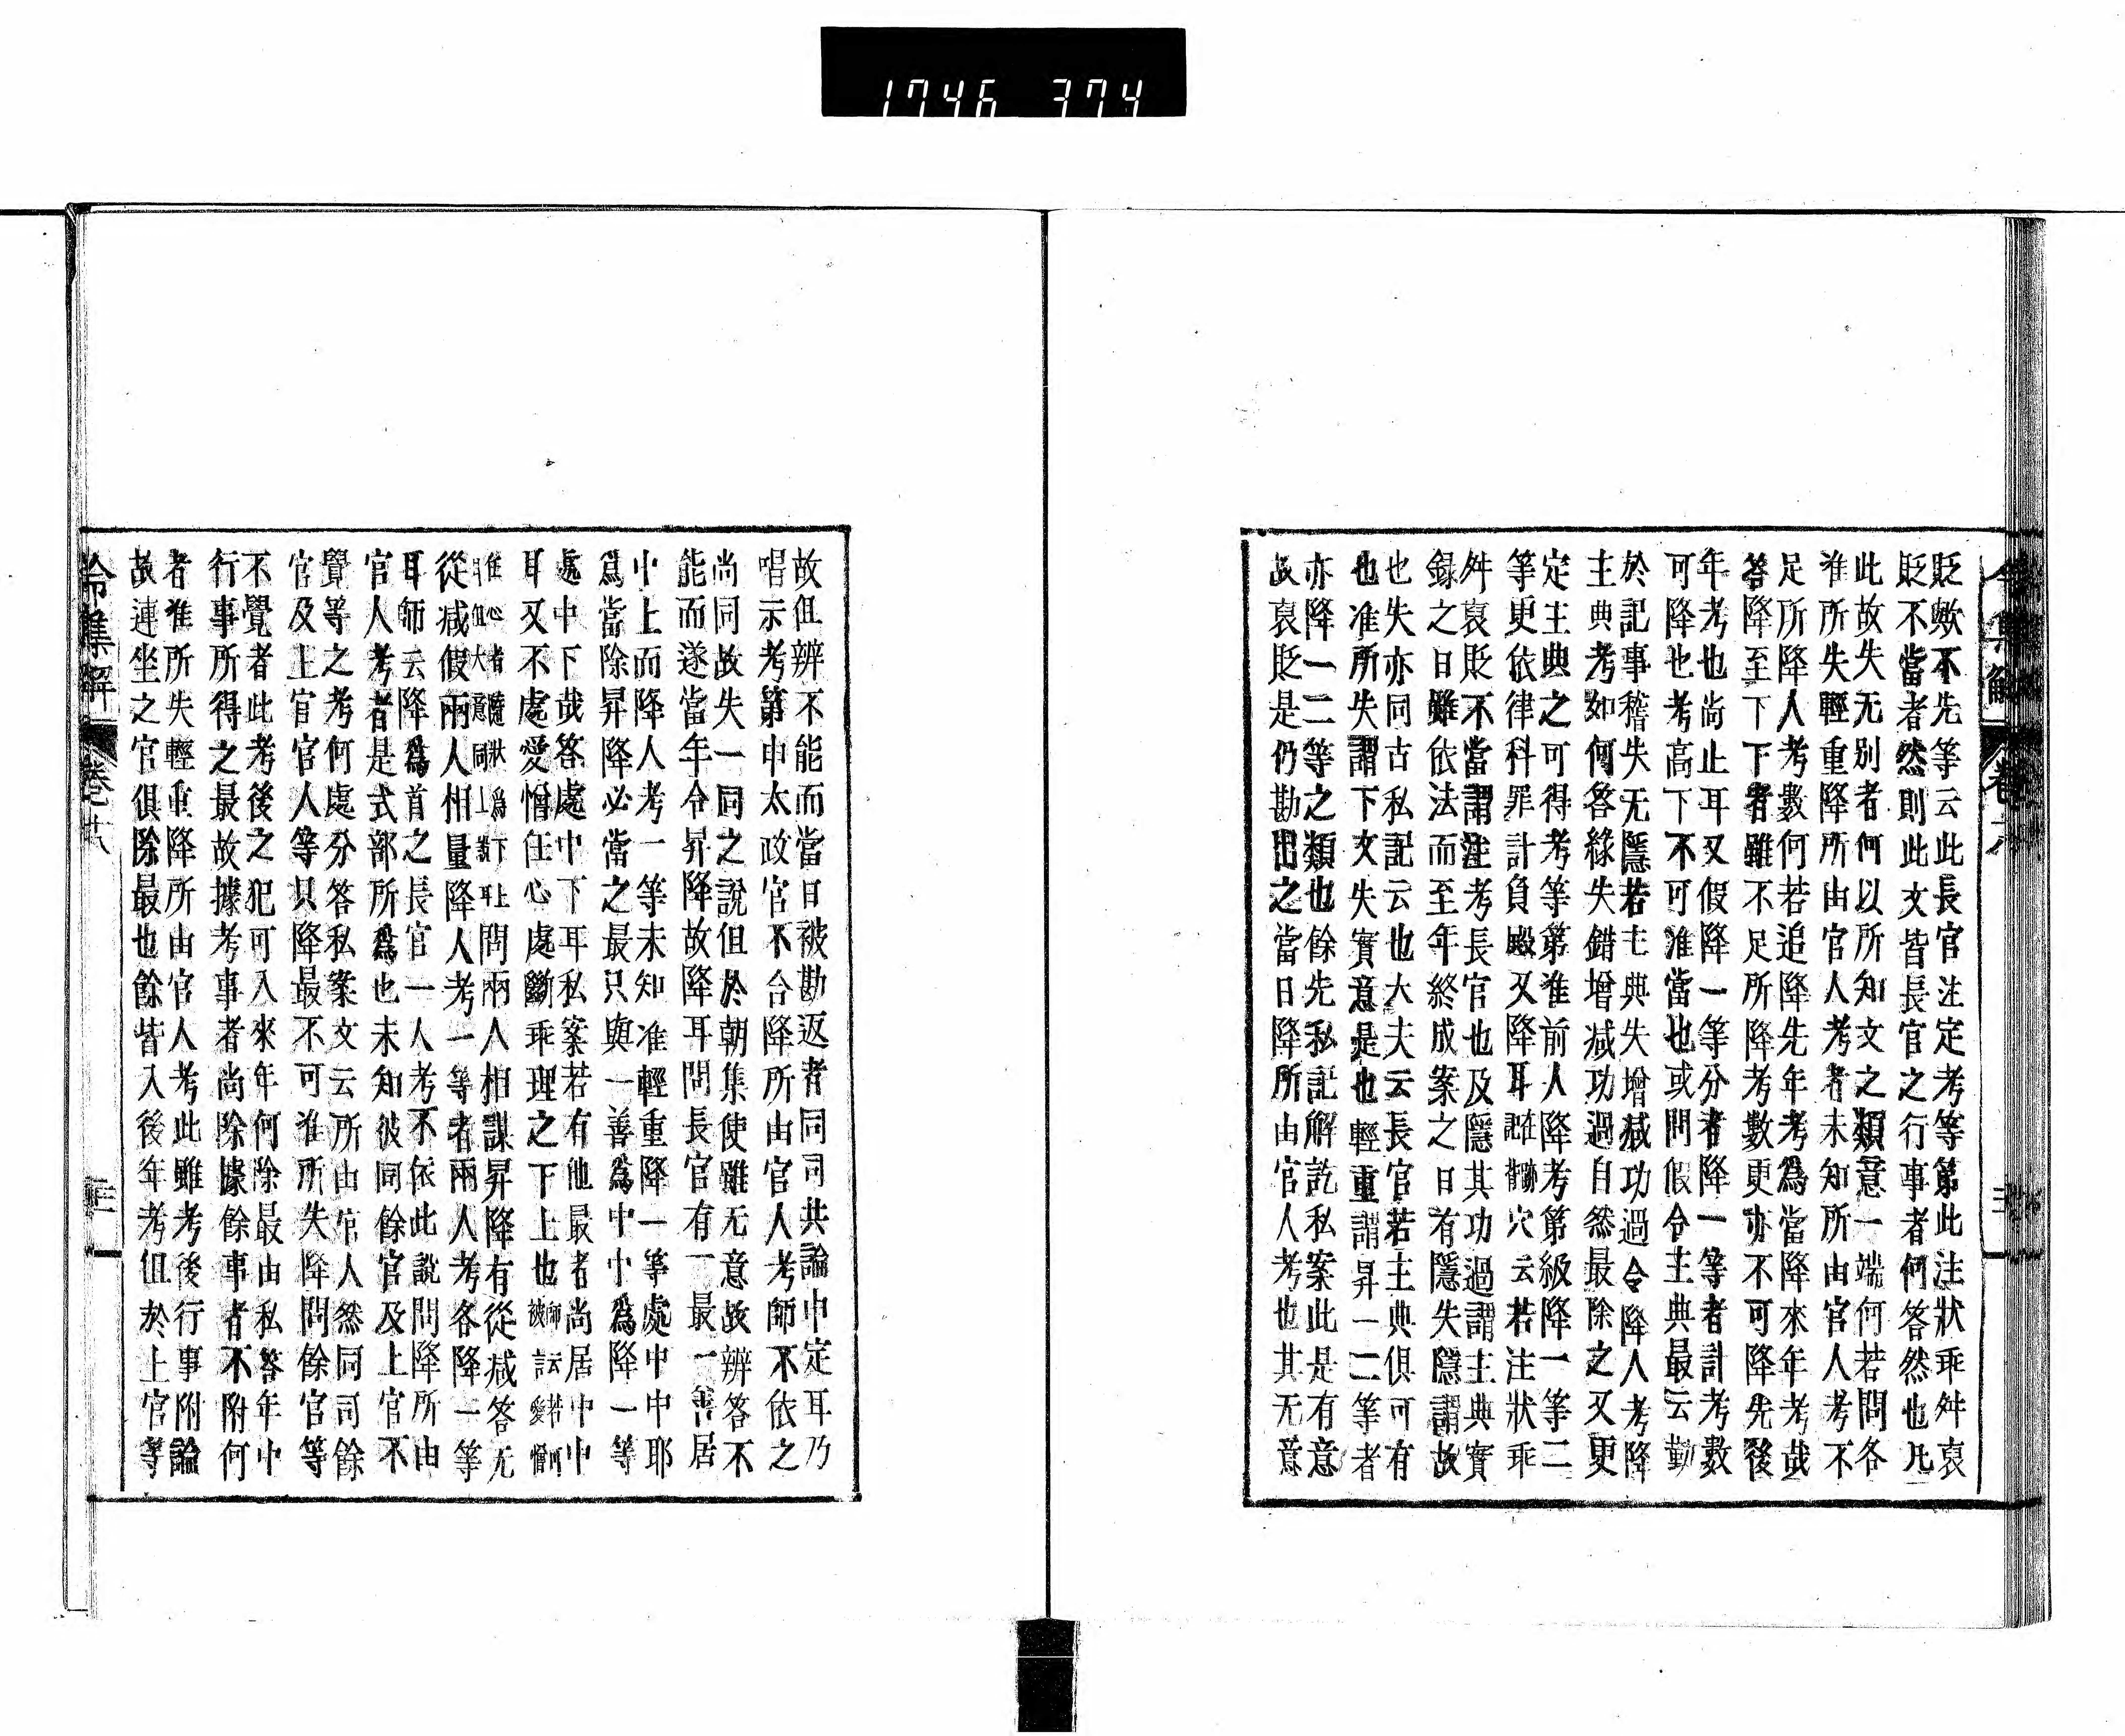 1746 374
貶歟不先等云此長官注定考等第此注狀乖舛㐮
貶不當者然則此文皆長官之行事者何答然也凡
此故失无別者何以所知文之類意一端何若問各
准所失輕重降所由官人考者未知所由官人考不
足所降人考數何若追降先年考爲當降來年考哉
答降至下下者雖不足所降考數更亦不可降先後
年考也尚止耳又假降一等分者降一等者計考數
可降也考高下不可准當也或問假令主典最云勤
於記事稽失无隱若主典失增減功過令降人考降
主典考如何答緣失錯增减功過自然最除之又更
定主典之可得考等第准前人降考第級降一等二
等更依律科罪計負殿又降耳穴云若注狀乖
舛㐮貶不當謂注考長官也及隱其功過謂主典實
録之日雖依法而至年終成案之日有隱失隱謂故
也失亦同古私記云也大夫云長官若主典俱可有
也准所失謂下文失實意是也輕重謂昇一二等者
亦降一二等之類也餘先私記解訖私案此是有意
故㐮貶是仍勘出之當日降所由官人考也其无意
故但辨不能而當日被勘返者同司共論中定耳乃
唱示考第申太政官不合降所由官人考師不依之
尚同故失一同之說但於朝集使雖无意故辨答不
能而遂當年令昇降故降耳問長官有一最一善居
中上而降人考一等未知准輕重降一等處中中耶
爲當除昇降必當之最只與一善爲中中爲降一等
處中下哉答處中下耳私案若有他最者尚居中中
耳又不處愛憎任心處斷乖理之下上也師云若何被愛憎
任心者隨狀爲下上耳但大意同上説耳問兩人相謀昇降有從减答无
從减假兩人相量降人考一等者兩人考各降一等
耳師云降爲首之長官一人考不依此說問降所由
官人考者是式部所爲也未知彼同餘官及上官不
覺等之考何處分答私案文云所由官人然同司餘
官及上官官人等只降最不可准所失降問餘官等
不覺者此考後之犯可入來年何除最由私答年中
行事所得之最故據考事者尚除據餘事者不附何
者准所失輕重降所由官人考此雖考後行事附論
故連坐之官俱除最也餘皆入後年考但於上官等
令集解 卷十八